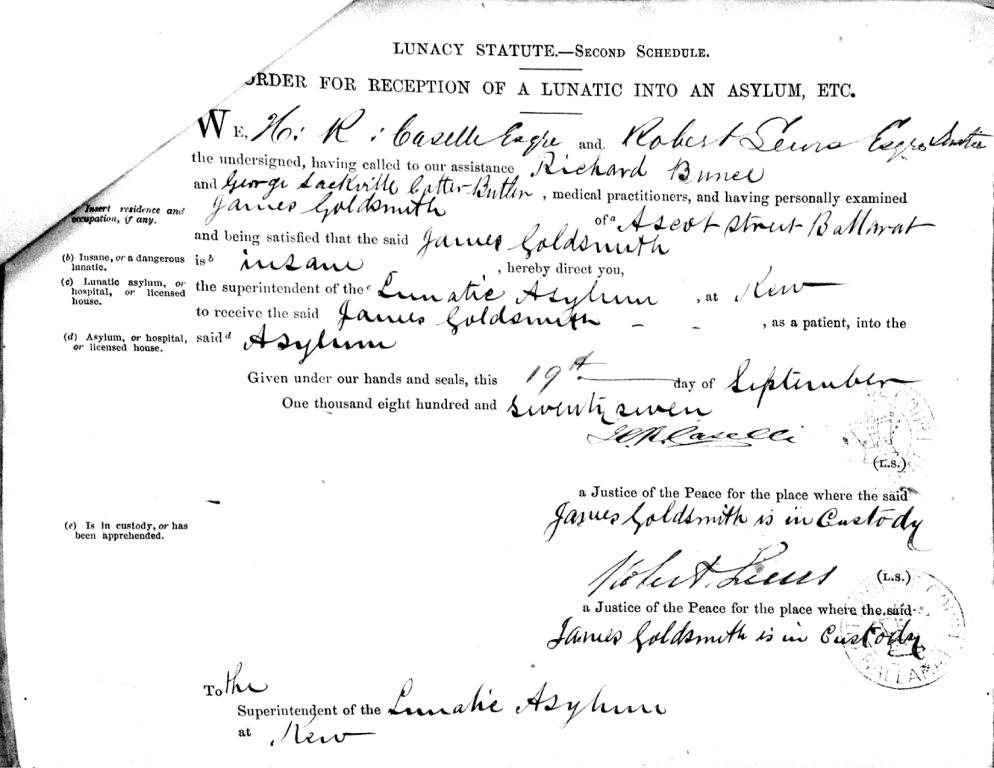 LUNACY STATUTE.—SECOND SCHEDULE.
ORDER FOR RECEPTION OF A LUNATIC INTO AN ASYLUM, ETC.
WE, H: R: Caselle Esqre and Robert Lewis Esqre Justice
the undersigned, having called to our assistance Richard Bunce
and George Sackville Cotter Butler, medical practitioners, and having personally examined
James Goldsmith of a Ascot Street Ballarat
Insert residence and occupation, if any.
and being satisfied that the said James Goldsmith
(b) Insane, or a dangerous lunatic.
is b insane , hereby direct you,
(c) Lunatic asylum, or hospital, or licensed house.
the superintendent of the c Lunatic Asylum , at Kew
to receive the said James Goldsmith - - , as a patient, into the
(d) Asylum, or hospital, or licensed house.
said d Asylum
Given under our hands and seals, this 19th day of September
One thousand eight hundred and seventy seven
H.R. Caselli
(L.S.)
a Justice of the Peace for the place where the said
James Goldsmith is in Custody
(e) Is in custody, or has been apprehended.
Robert Lewis (L.S.)
a Justice of the Peace for the place where the said
James Goldsmith is in Custody
BALLARAT
To the
Superintendent of the Lunatic Asylum
at Kew